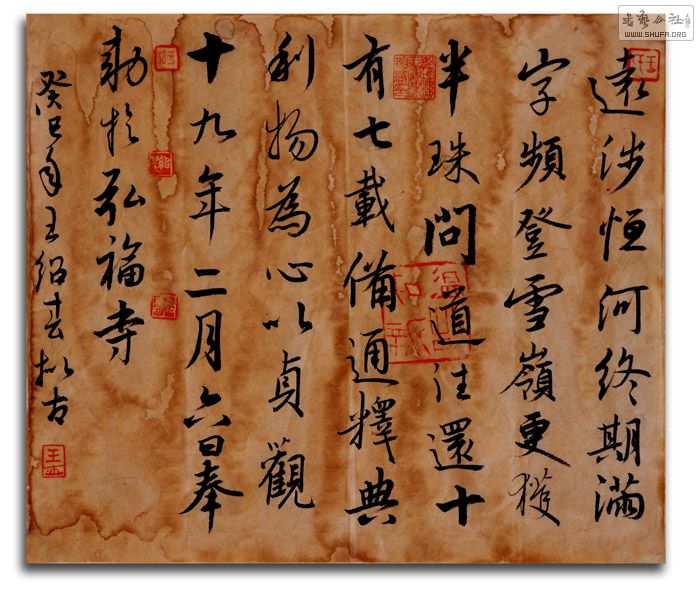 遠涉恒河終期滿
字頻登雪嶺更獲
半珠問道往還十
有七載備通釋典
利物為心以貞觀
十九年二月六日奉
勅於弘福寺
癸巳年王紹春拟古
書藝公社
WWW.SHUFA.ORG